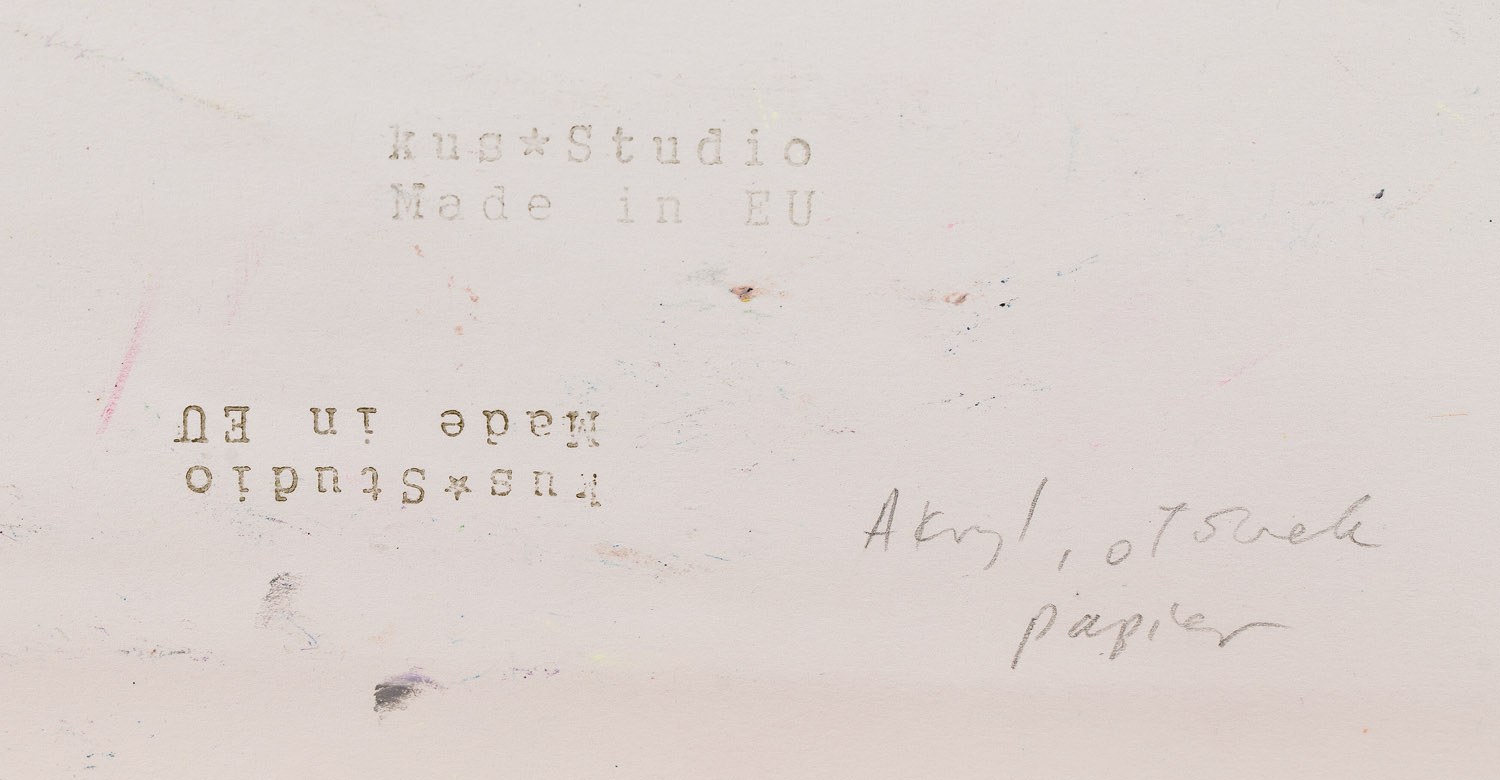 kus★Studio
Made in EU
kus★Studio
Made in EU
Akryl, ołówek
papier